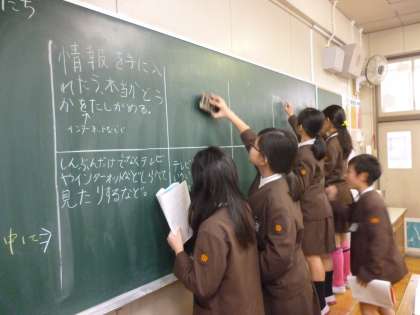 たち
情報を手に入
れたら、本当かどう
かをたしかめる。
↑
インターネットなどで
しんぶんだけでなくテレビ
やインターネットなどしらべて
見たりするなど。
テレビ
中に→